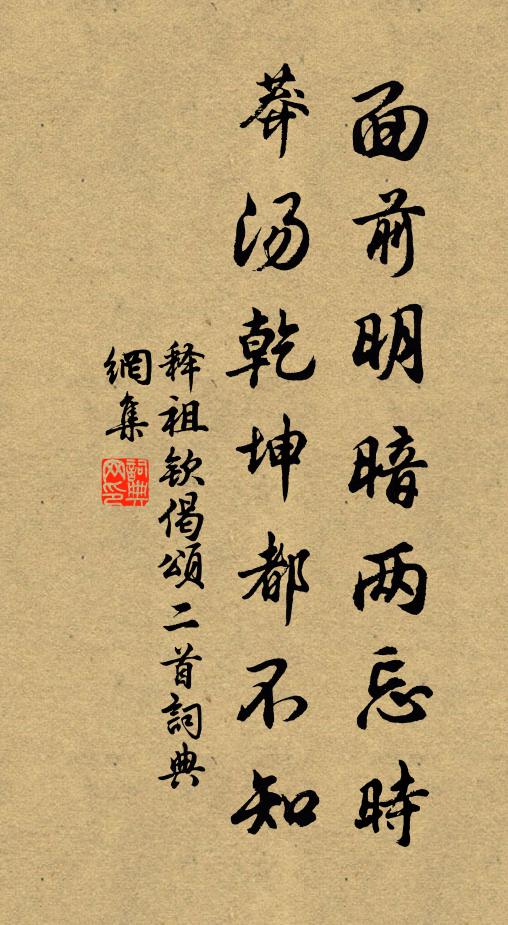 面前明暗两忘时
莽汤乾坤都不知
释祖钦偈颂二首詞典
網集
詞典网印